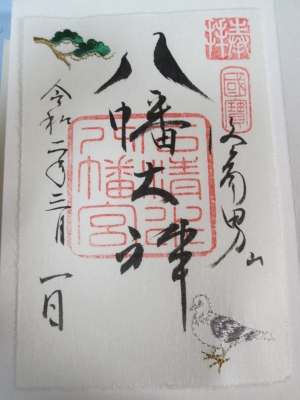 奉拝
國寶
やわた男山
八幡大神
石清水
八幡宮
令和二年三月一日